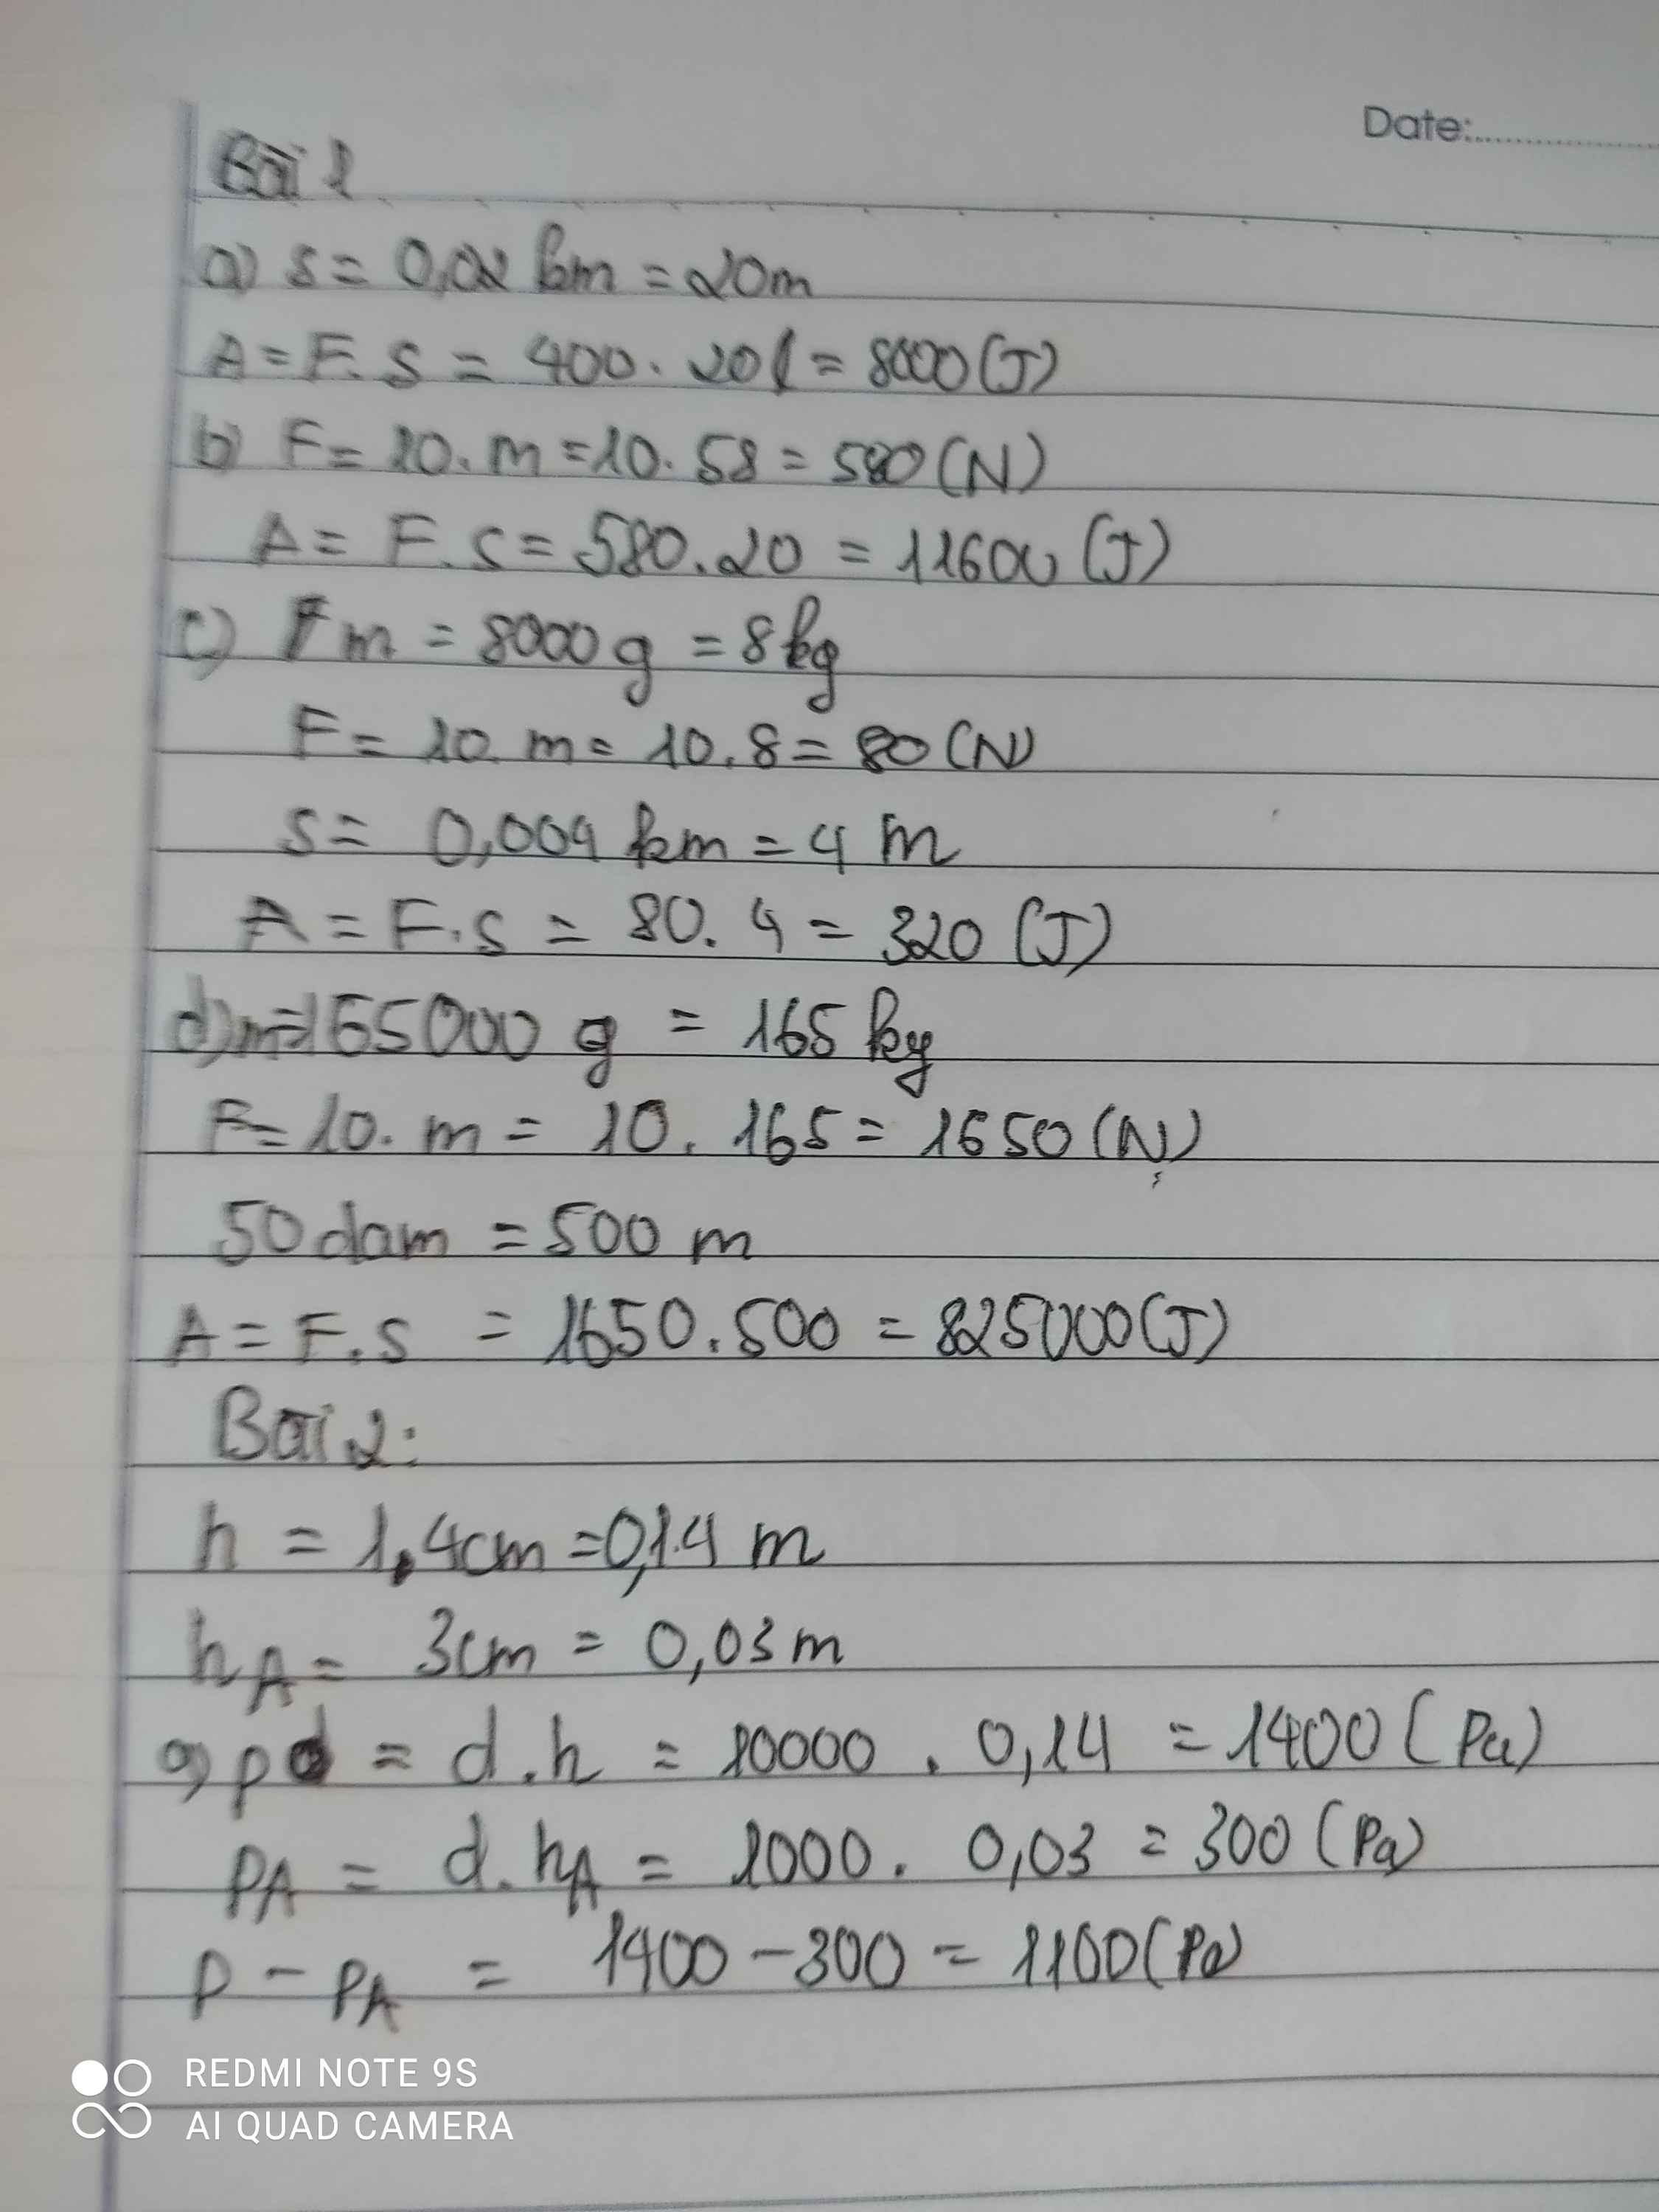 Date:
Bài 1
a) s = 0,02 km = 20m
A = F.S = 400.20 = 8000 (J)
b) F = 10.m = 10.58 = 580 (N)
A = F.S = 580.20 = 11600 (J)
c) m = 8000g = 8kg
F = 10.m = 10.8 = 80 (N)
s = 0,004 km = 4 m
A = F.S = 80.4 = 320 (J)
d) m = 165000 g = 165 kg
F = 10.m = 10.165 = 1650 (N)
50 dam = 500 m
A = F.S = 1650.500 = 825000 (J)
Bài 2:
h = 1,4cm = 0,14 m
hA = 3cm = 0,03m
a) p = d.h = 10000.0,14 = 1400 (Pa)
pA = d.hA = 1000.0,03 = 300 (Pa)
p - pA = 1400 - 300 = 1100 (Pa)
REDMI NOTE 9S
AI QUAD CAMERA